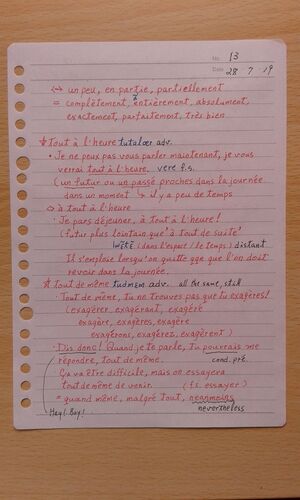 No. 13
Date 28 . 7 . 19
↔ un peu, en partie, partiellement
= complètement, entièrement, absolument,
exactement, parfaitement, très bien
☆ Tout à l'heure tutalœr adv.
• Je ne peux pas vous parler maintenant, je vous
verrai tout à l'heure. vere f.s.
(un futur ou un passé proches dans la journée
dans un moment ↳ il y a peu de temps
⇨ à tout à l'heure
• Je pars déjeuner, à tout à l'heure!
(futur plus lointain que 'à tout de suite'
(dans l'espace / le temps) distant
Il s'emploie lorsqu'on quitte qqn que l'on doit
revoir dans la journée.
☆ Tout de même tudmɛm adv. all the same, still
• Tout de même, tu ne trouves pas que tu exagères!
(exagérer, exagérant, exagéré
exagère, exagères, exagère
exagérons, exagérez, exagèrent)
• Dis donc! Quand je te parle, tu pourrais me
répondre, tout de même. cond. pré.
Ça va être difficile, mais on essayera
tout de même de venir. (f.s. essayer)
= quand même, malgré tout, néanmoins
Hey! Say! nevertheless